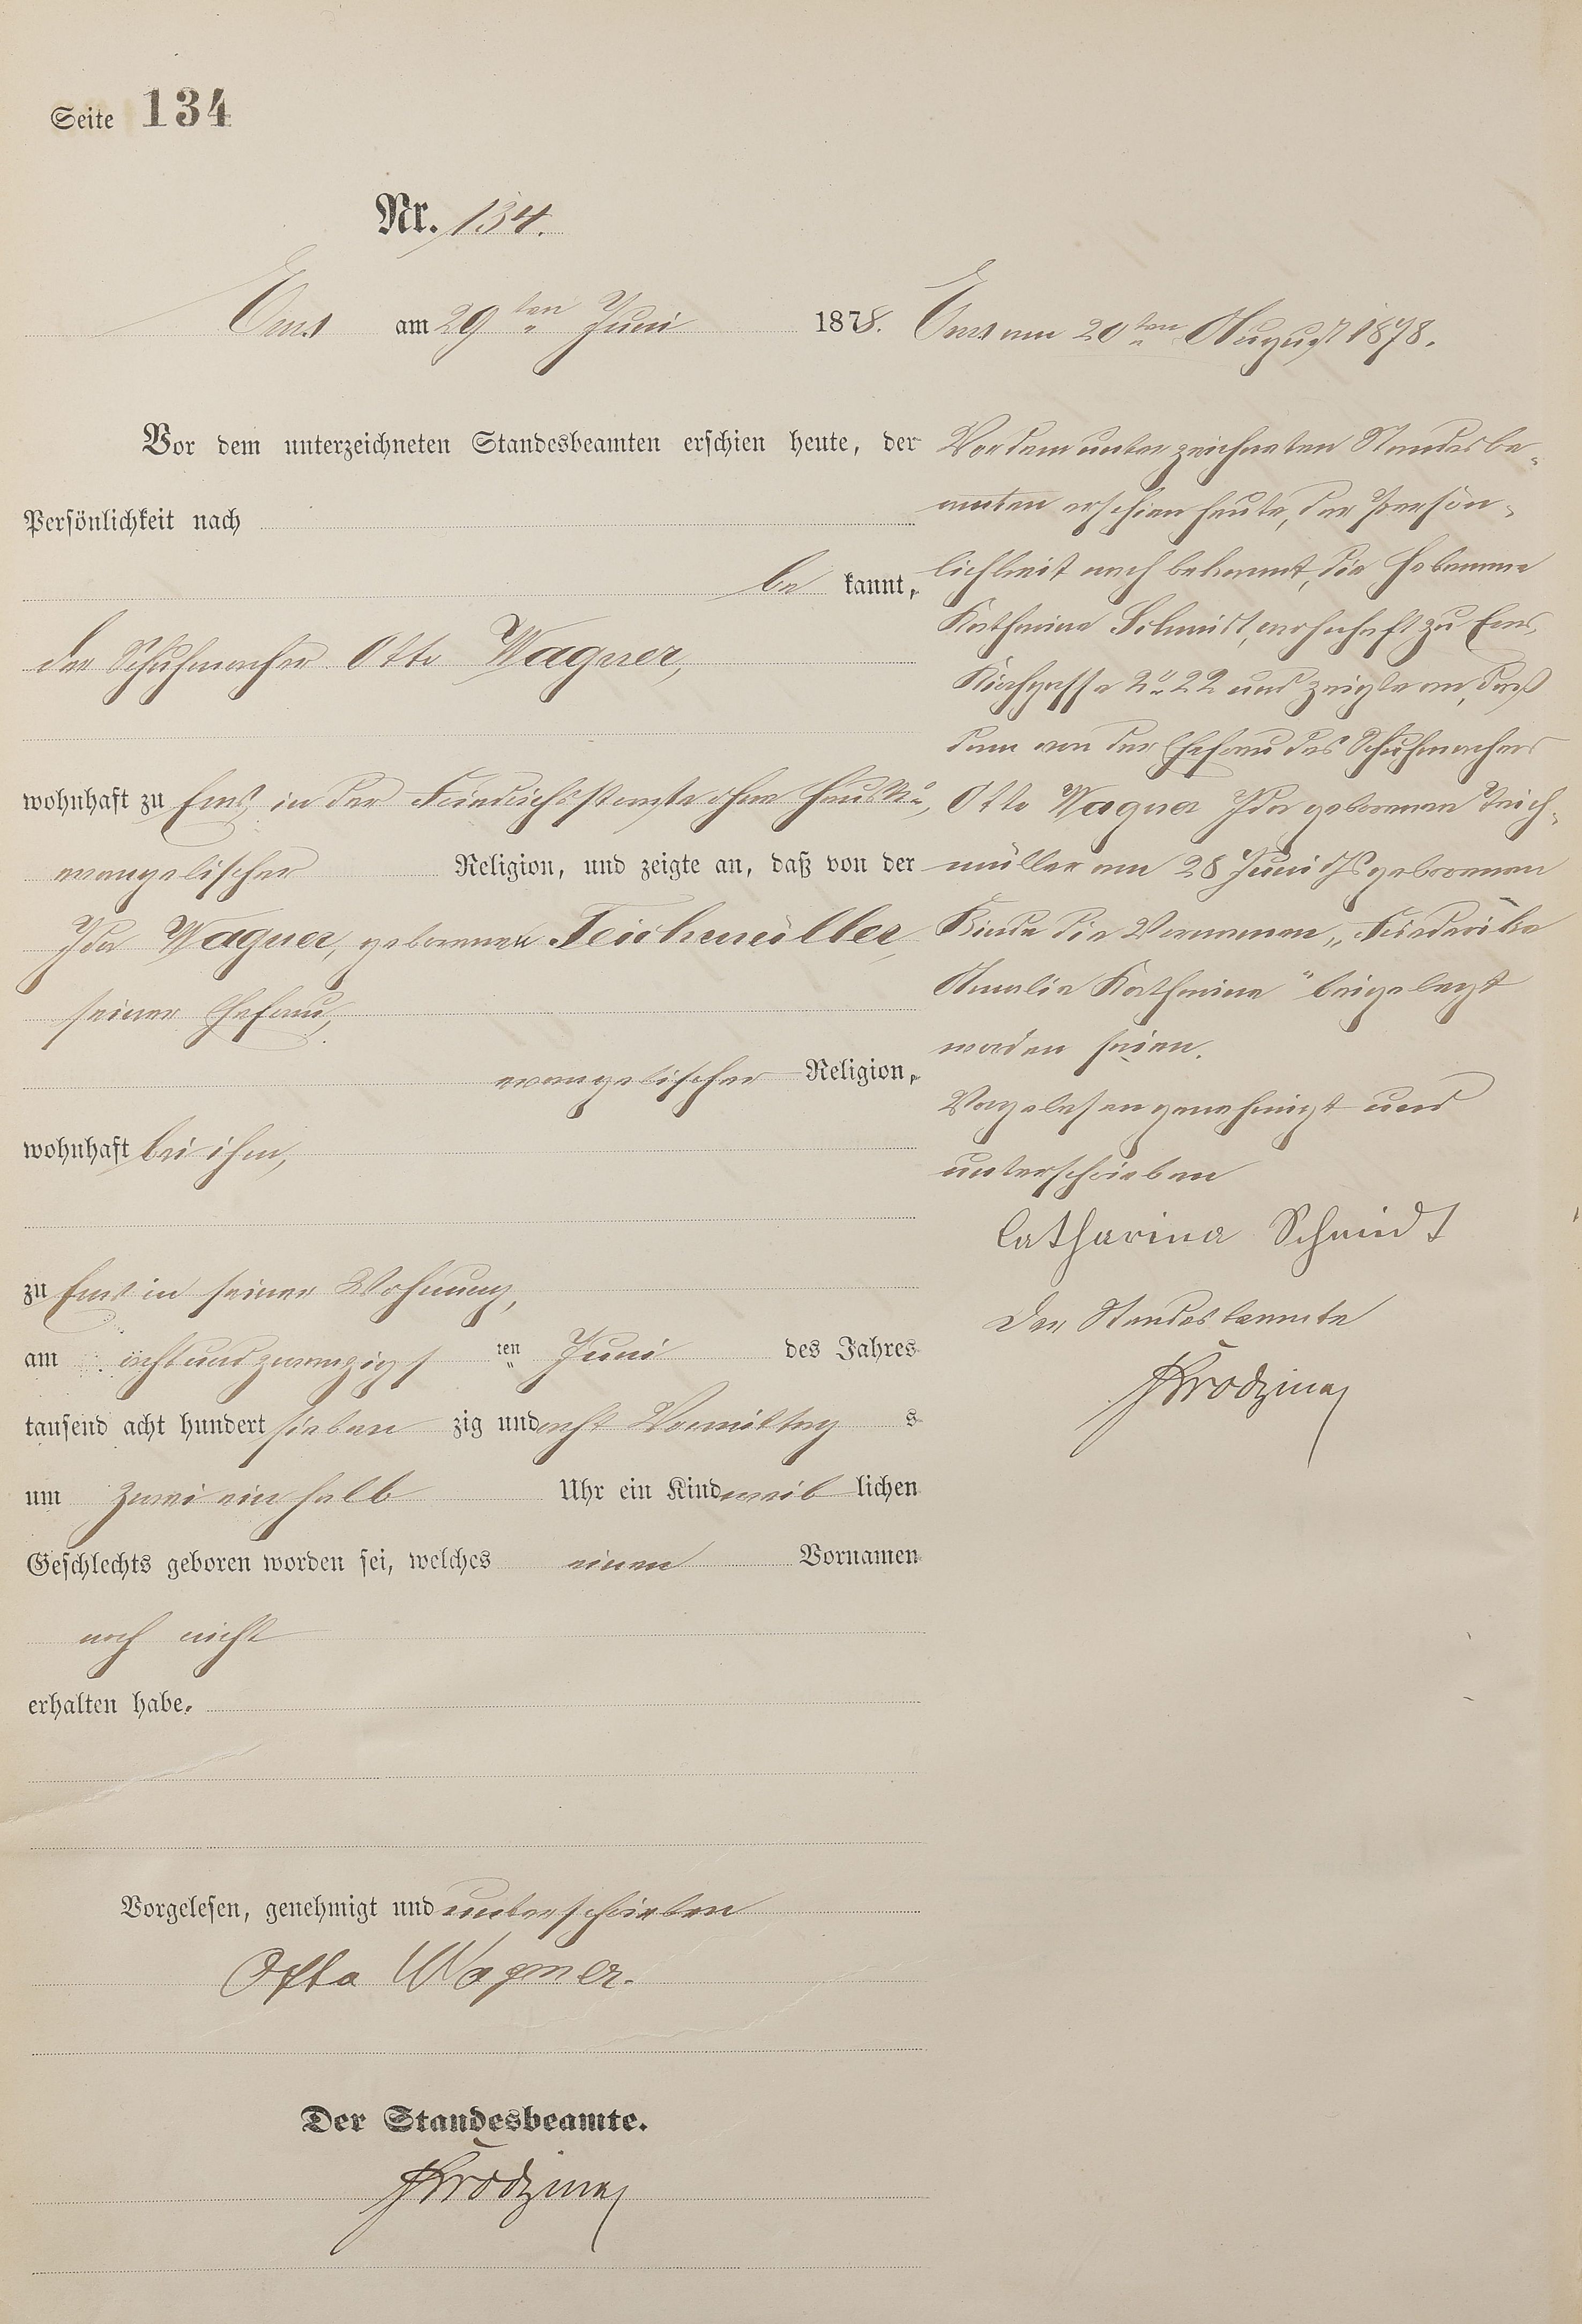 Seite 134
Nr. 134.
Ems am 29ten Juni 1878.
Vor dem unterzeichneten Standesbeamten erschien heute, der
Persönlichkeit nach
be kannt,
der Schuhmacher Otto Wagner,
wohnhaft zu Ems, in der Friedrichsstraße ohne Haus No,
evangelischer Religion, und zeigte an, daß von der
Ida Wagner, geborenen Teichmüller,
seiner Ehefrau,
evangelischer Religion,
wohnhaft bei ihm,
zu Ems in seiner Wohnung,
am achtundzwanzigs ten Juni des Jahres
tausend acht hundert sieben zig und acht Vormittag s
um zwei ein halb Uhr ein Kind weib lichen
Geschlechts geboren worden sei, welches einen Vornamen
noch nicht
erhalten habe.
Vorgelesen, genehmigt und unterschrieben
Otto Wagner.
Der Standesbeamte.
Ems am 20ten August 1878.
Vor dem unterzeichneten Standesbe-
amten erschien heute, der Persön-
lichkeit nach bekannt, die Hebamme
Katharina Schmidt, wohnhaft zu Ems,
Kirchgasse No 22 und zeigte an, daß
dem von der Ehefrau des Schuhmachers
Otto Wagner Ida geborenen Teich-
müller am 28 Juni ds geborenen
Kinde die Vornamen „Friederike
Amalie Katharina" beigelegt
worden seien.
Vorgelesen genehmigt und
unterschrieben
Catharina Schmidt
Der Standesbeamte